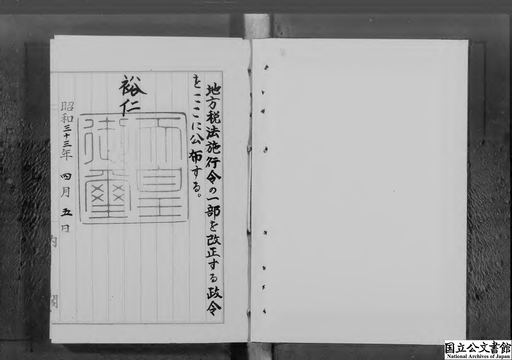 地方税法施行令の一部を改正する政令
をここに公布する。
裕仁
天皇
御璽
昭和三十三年 四月 五日
内閣
国立公文書館
National Archives of Japan